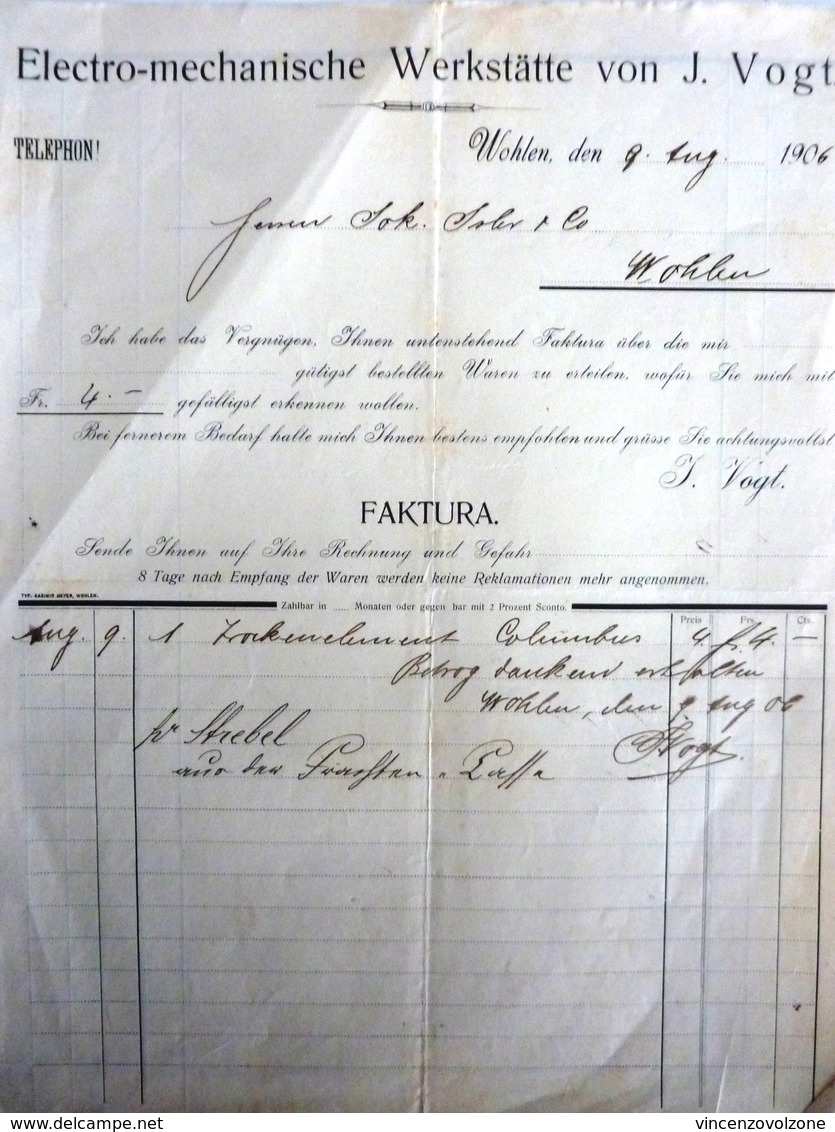 Electro-mechanische Werkstätte von J. Vogt.
TELEPHON!
Wohlen, den 9. Aug. 1906
Herren Jok. Isler & Co
Wohlen
Ich habe das Vergnügen, Ihnen untenstehend Faktura über die mir
gütigst bestellten Waren zu erteilen, wofür Sie mich mit
Fr. 4.– gefälligst erkennen wollen.
Bei fernerem Bedarf halte mich Ihnen bestens empfohlen und grüsse Sie achtungsvollst
J. Vogt.
FAKTURA.
Sende Ihnen auf Ihre Rechnung und Gefahr
8 Tage nach Empfang der Waren werden keine Reklamationen mehr angenommen.
TYP. KASIMIR MEYER, WOHLEN.
Zahlbar in ...... Monaten oder gegen bar mit 2 Prozent Sconto.
Preis Frs. Cts.
Aug. 9. 1 Trockenelement Columbus 4. fr. 4. –
Betrag dankend erhalten
Wohlen, den 9. Aug 06
pr Strebel
J. Vogt.
aus der Frachten-Cassa
www.delcampe.net
vincenzovolzone